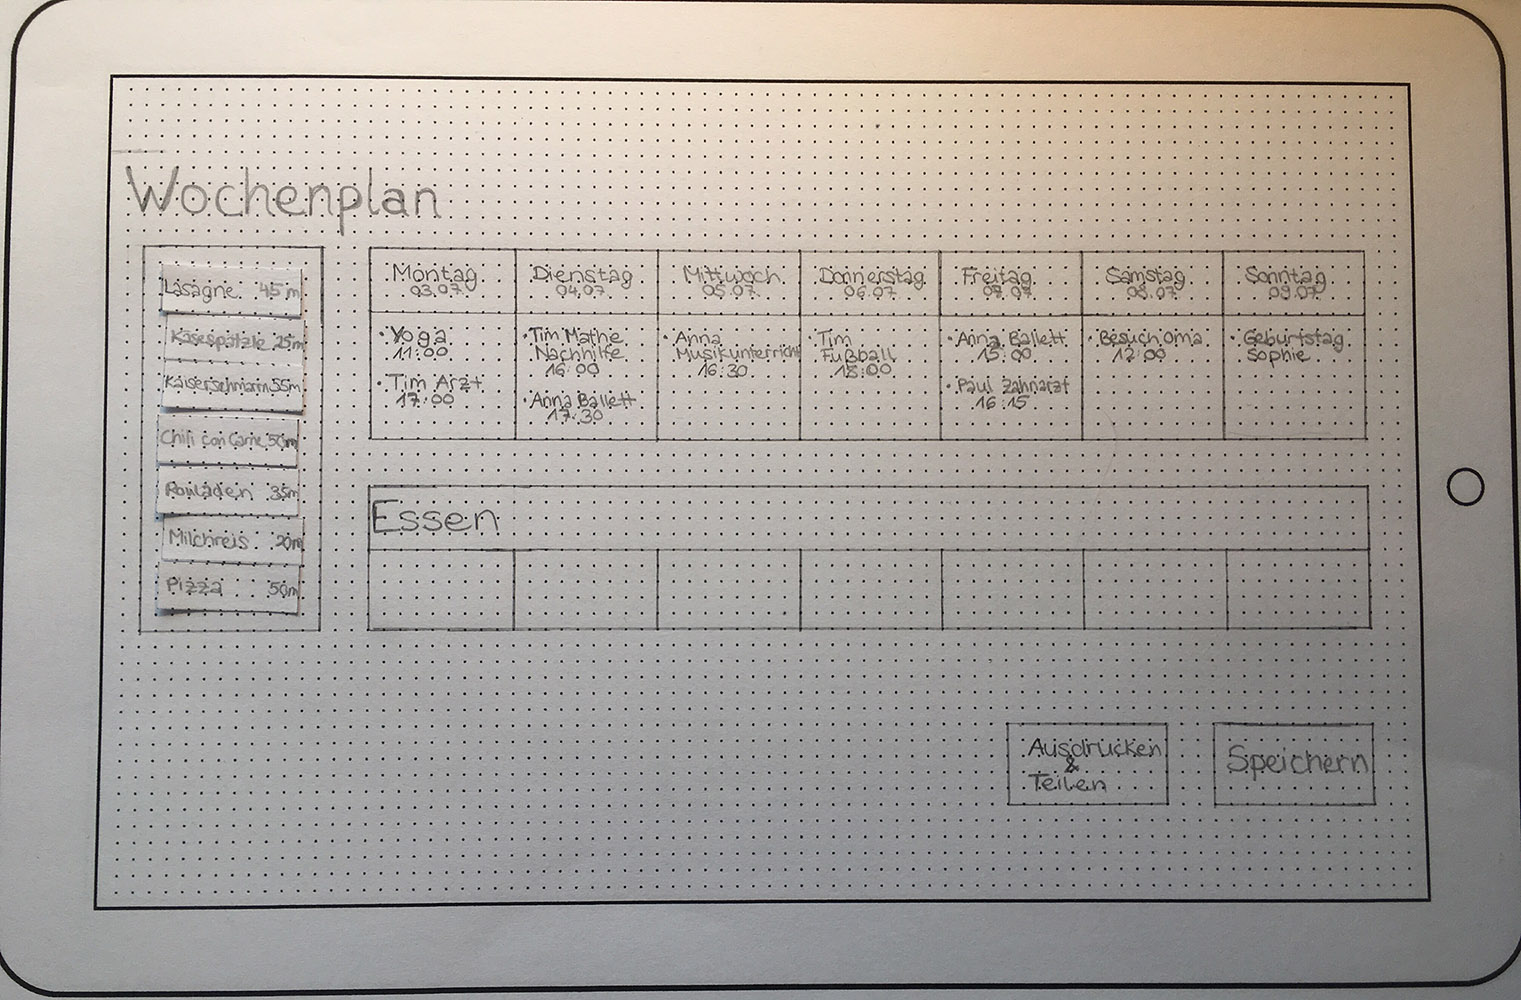 Wochenplan
Lasagne 45m
Käsespätzle 25m
Kaiserschmarrn 55m
Chili con Carne 50m
Rouladen 35m
Milchreis 20m
Pizza 50m
Montag
03.07
Dienstag
04.07
Mittwoch
05.07
Donnerstag
06.07
Freitag
07.07
Samstag
08.07
Sonntag
09.07
• Yoga
11:00
• Tim Arzt
17:00
• Tim Mathe
Nachhilfe
16:00
• Anna Ballett
17:30
• Anna
Musikunterricht
16:30
• Tim
Fußball
18:00
• Anna Ballett
15:00
• Paul Zahnarzt
16:15
• Besuch Oma
12:00
• Geburtstag
Sophie
Essen
Ausdrucken
&
Teilen
Speichern